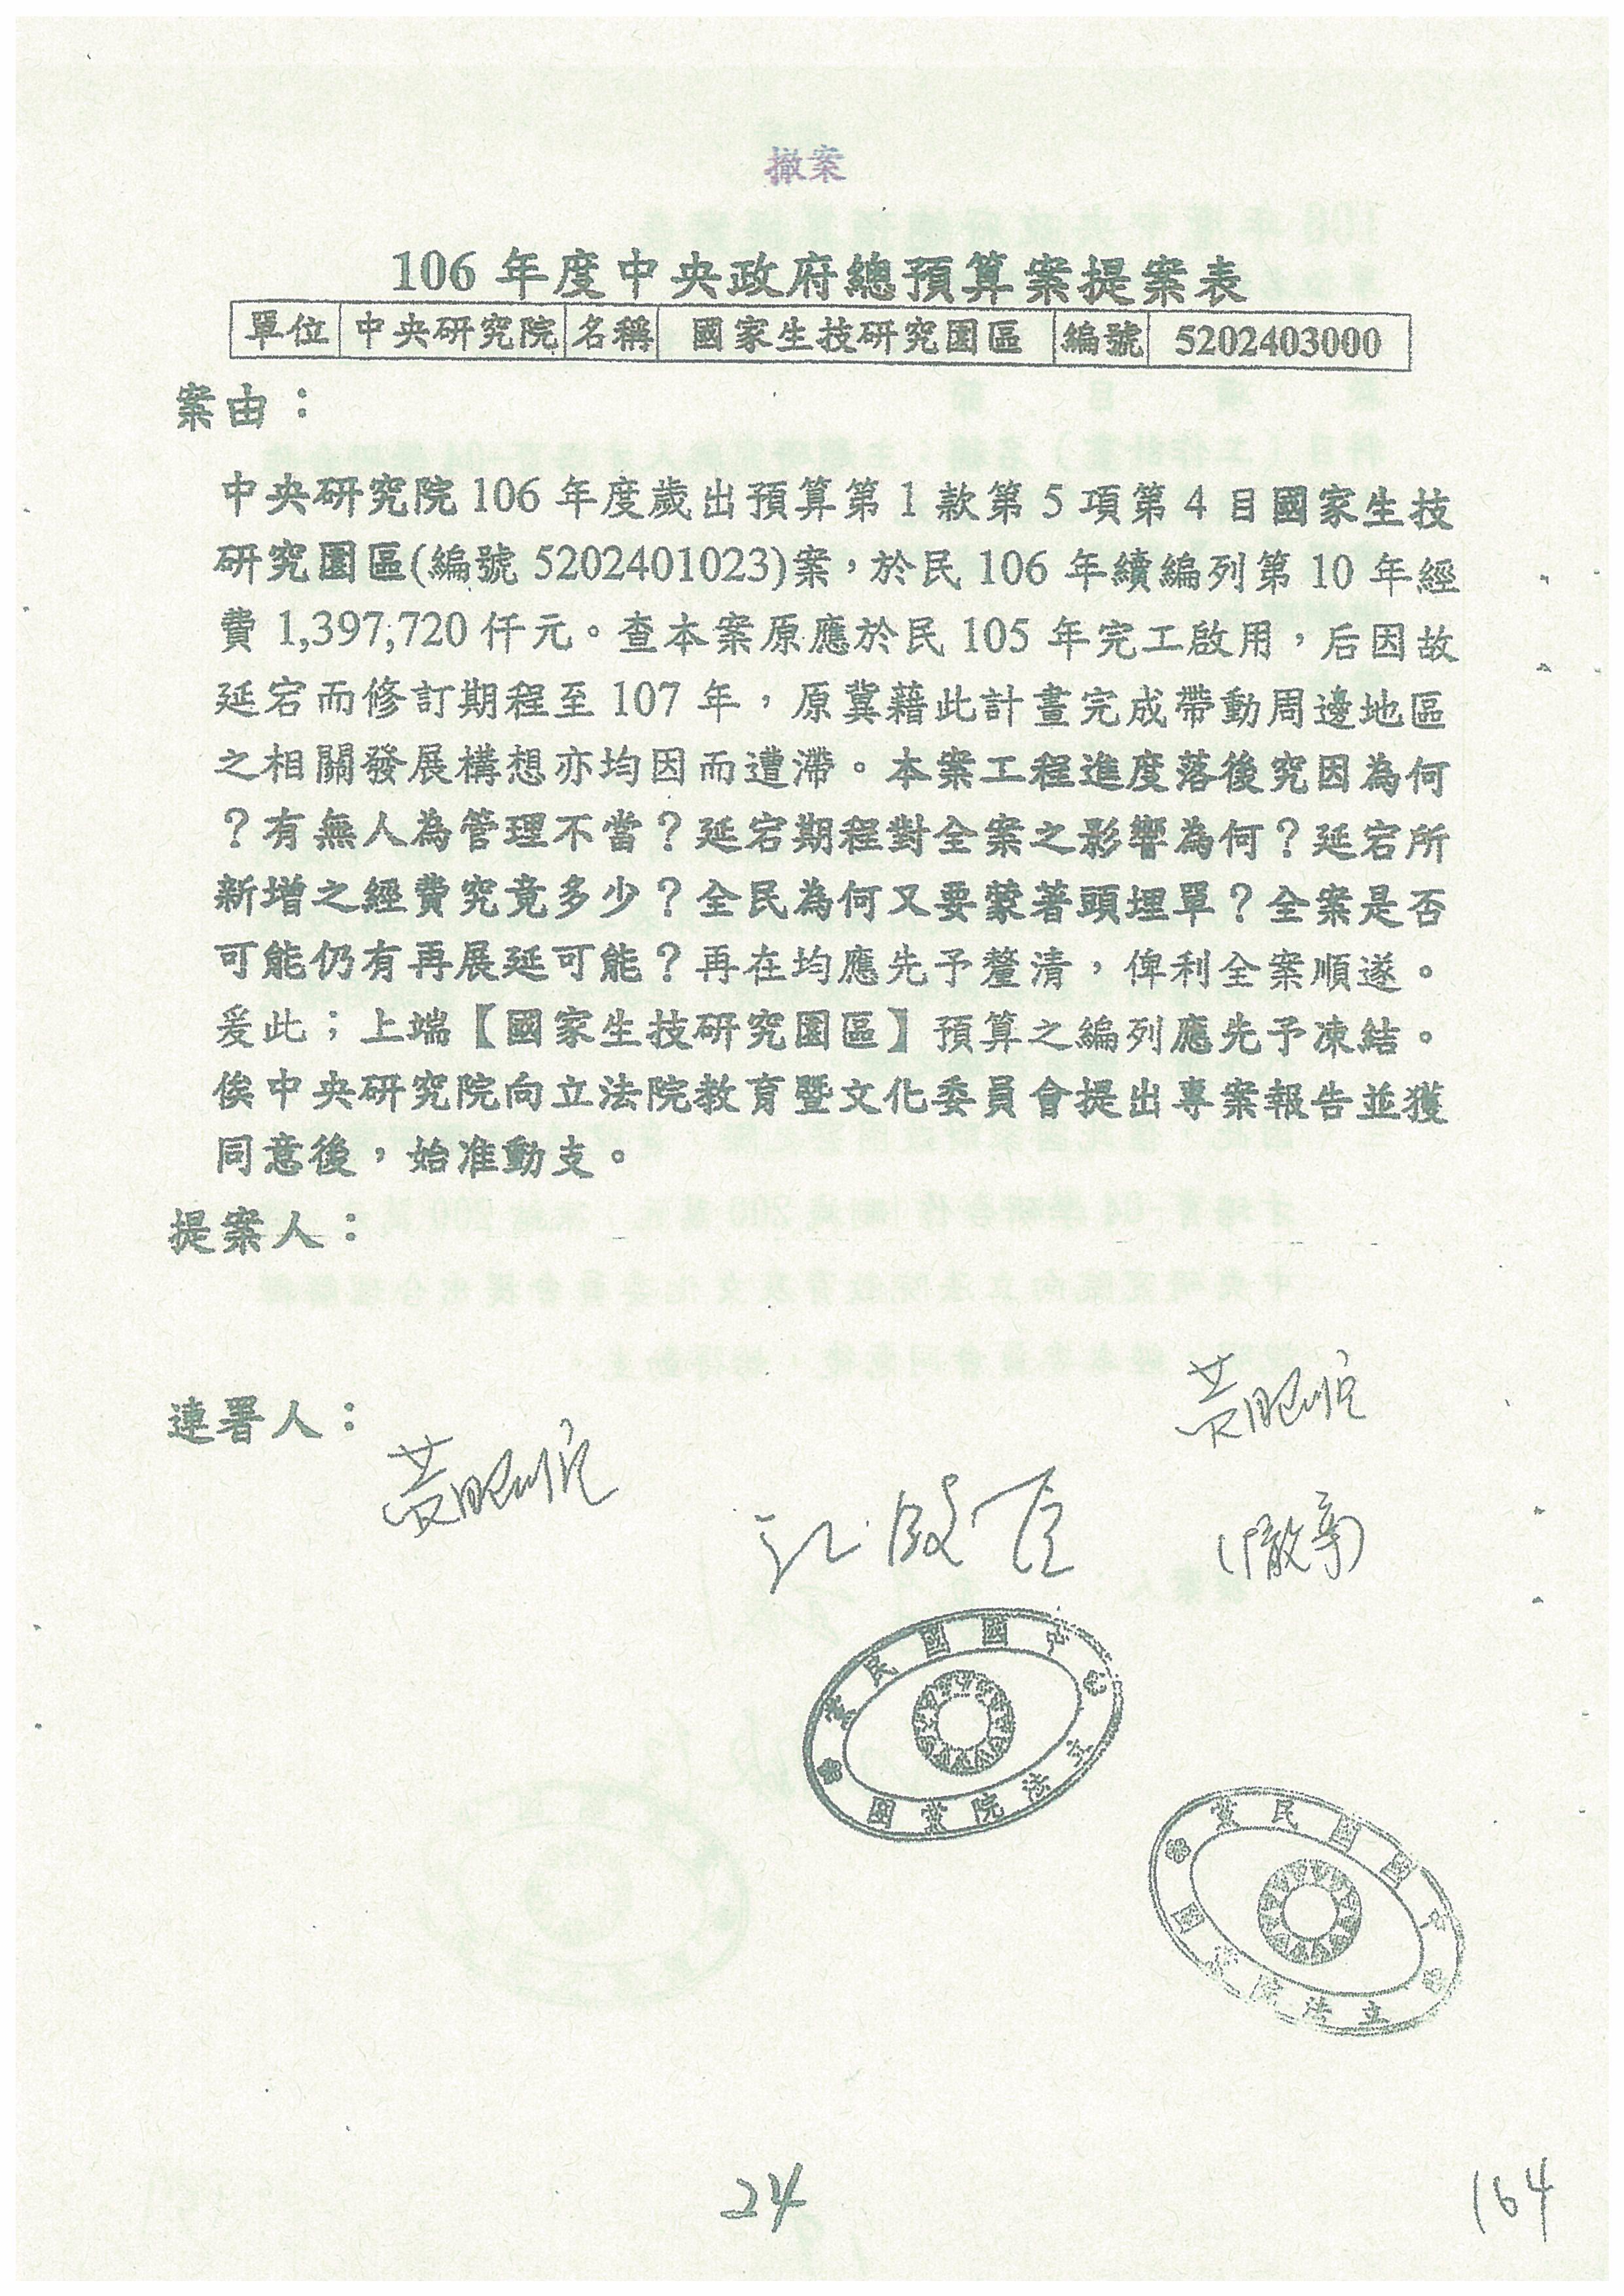 撤案
106 年度中央政府總預算案提案表
單位 中央研究院 名稱 國家生技研究園區 編號 5202403000
案由：
中央研究院 106 年度歲出預算第 1 款第 5 項第 4 目國家生技
研究園區(編號 5202401023)案，於民 106 年續編列第 10 年經
費 1,397,720 仟元。查本案原應於民 105 年完工啟用，后因故
延宕而修訂期程至 107 年，原冀藉此計畫完成帶動周邊地區
之相關發展構想亦均因而遭滯。本案工程進度落後究因為何
？有無人為管理不當？延宕期程對全案之影響為何？延宕所
新增之經費究竟多少？全民為何又要蒙著頭埋單？全案是否
可能仍有再展延可能？再在均應先予釐清，俾利全案順遂。
爰此；上端【國家生技研究園區】預算之編列應先予凍結。
俟中央研究院向立法院教育暨文化委員會提出專案報告並獲
同意後，始准動支。
提案人：
連署人：
黃昭順
黃昭順
江啟臣
(撤案)
中國國民黨
立法院黨團
中國國民黨
立法院黨團
24
164